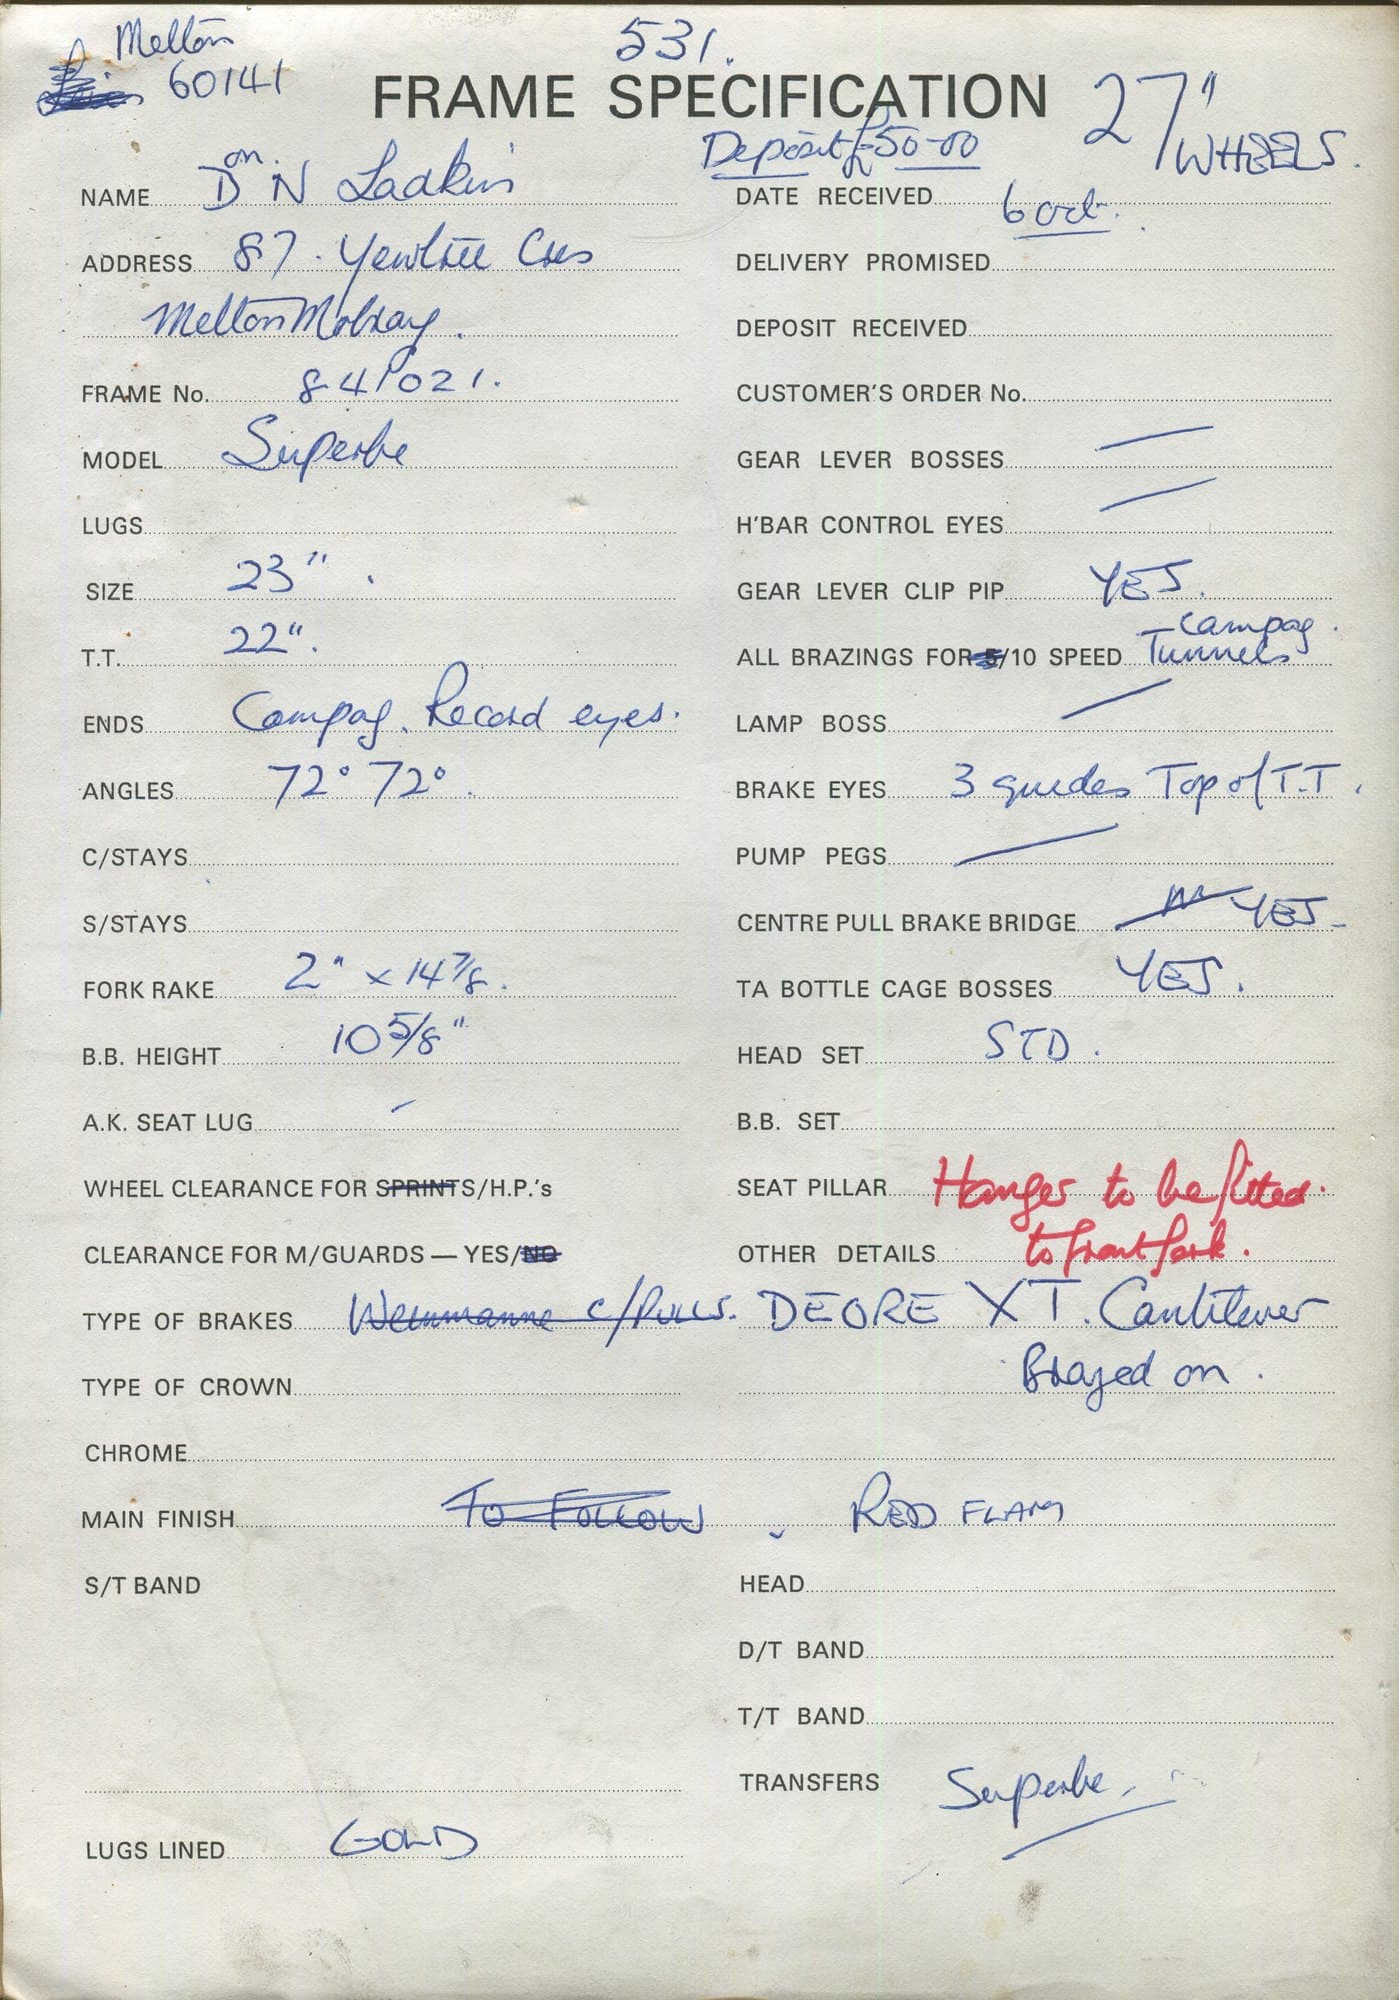 Melton
60141
531.
FRAME SPECIFICATION
27" WHEELS.
Deposit £50-00
NAME Don N Ladkin
ADDRESS 87. Yewtree Cres
Melton Mobray.
FRAME No. 841021.
MODEL Superbe
LUGS
SIZE 23".
T.T. 22".
ENDS Campag. Record eyes.
ANGLES 72° 72°.
C/STAYS
S/STAYS
FORK RAKE 2" x 14 7/8.
B.B. HEIGHT 10 5/8"
A.K. SEAT LUG –
WHEEL CLEARANCE FOR SPRINTS/H.P.'s
CLEARANCE FOR M/GUARDS — YES/NO
DATE RECEIVED 6 oct.
DELIVERY PROMISED
DEPOSIT RECEIVED
CUSTOMER'S ORDER No.
GEAR LEVER BOSSES —
H'BAR CONTROL EYES —
GEAR LEVER CLIP PIP YES.
ALL BRAZINGS FOR 5/10 SPEED Campag. Tunnels
LAMP BOSS —
BRAKE EYES 3 guides Top of T.T.
PUMP PEGS —
CENTRE PULL BRAKE BRIDGE YES-
TA BOTTLE CAGE BOSSES YES.
HEAD SET STD.
B.B. SET
SEAT PILLAR Hanger to be fitted.
OTHER DETAILS to front fork.
TYPE OF BRAKES Weinmanne c/Pulls. DEORE XT. Cantilever
TYPE OF CROWN Brazed on.
CHROME
MAIN FINISH To Follow. RED FLAM
S/T BAND
HEAD
D/T BAND
T/T BAND
TRANSFERS Superbe
LUGS LINED GOLD